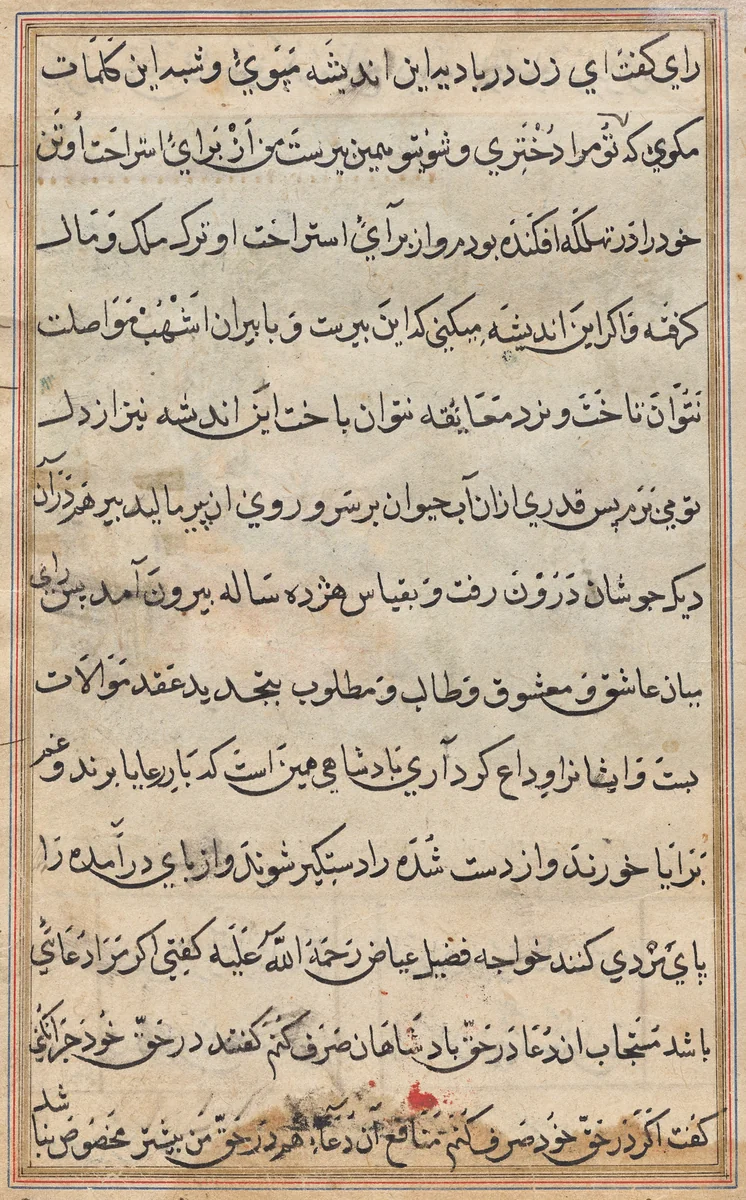 رای کفت ای زن در بادید این اندیشه مپوی و شبد این کلمات
مکوی که تو مرا دختری و شویتو همین پیرست من از برای استراحت او تن
خود را در تهلکه افکنده بودم و از برای استراحت او ترک ملک و مال
کرفته و اکر این اندیشه میکنی که این پیرست و با پیران اشهب مواصلت
نتوان تاخت و نرد معانقه نتوان باخت این اندشه نیز از دل
تو می برم پس قدری ازان آب حیوان بر سر و روی ان پیر مالید پیر هم در آن
دیک جوشان درون رفت و بقیاس هژده ساله بیرون آمد پس رای
میان عاشق و معشوق و طالب و مطلوب بتجدید عقد موالات
بست و ایشانرا وداع کرد آری بادشاهی همین است که بار رعایا برند و غم
برایا خورند و از دست شده را دستکیر شوند و از بای درآمده را
پای مردی کنند خواجه فضیل عیاض رحمة الله علیه کفتی اکر مرا دعائی
باشد مستجاب ان دعا در حق بادشاهان صرف کنم کفتند در حق خود چرا نکنی
کفت اکر در حق خود صرف کنم منافع آن دعا هم در حق من بیشتر مخصوص نباشد